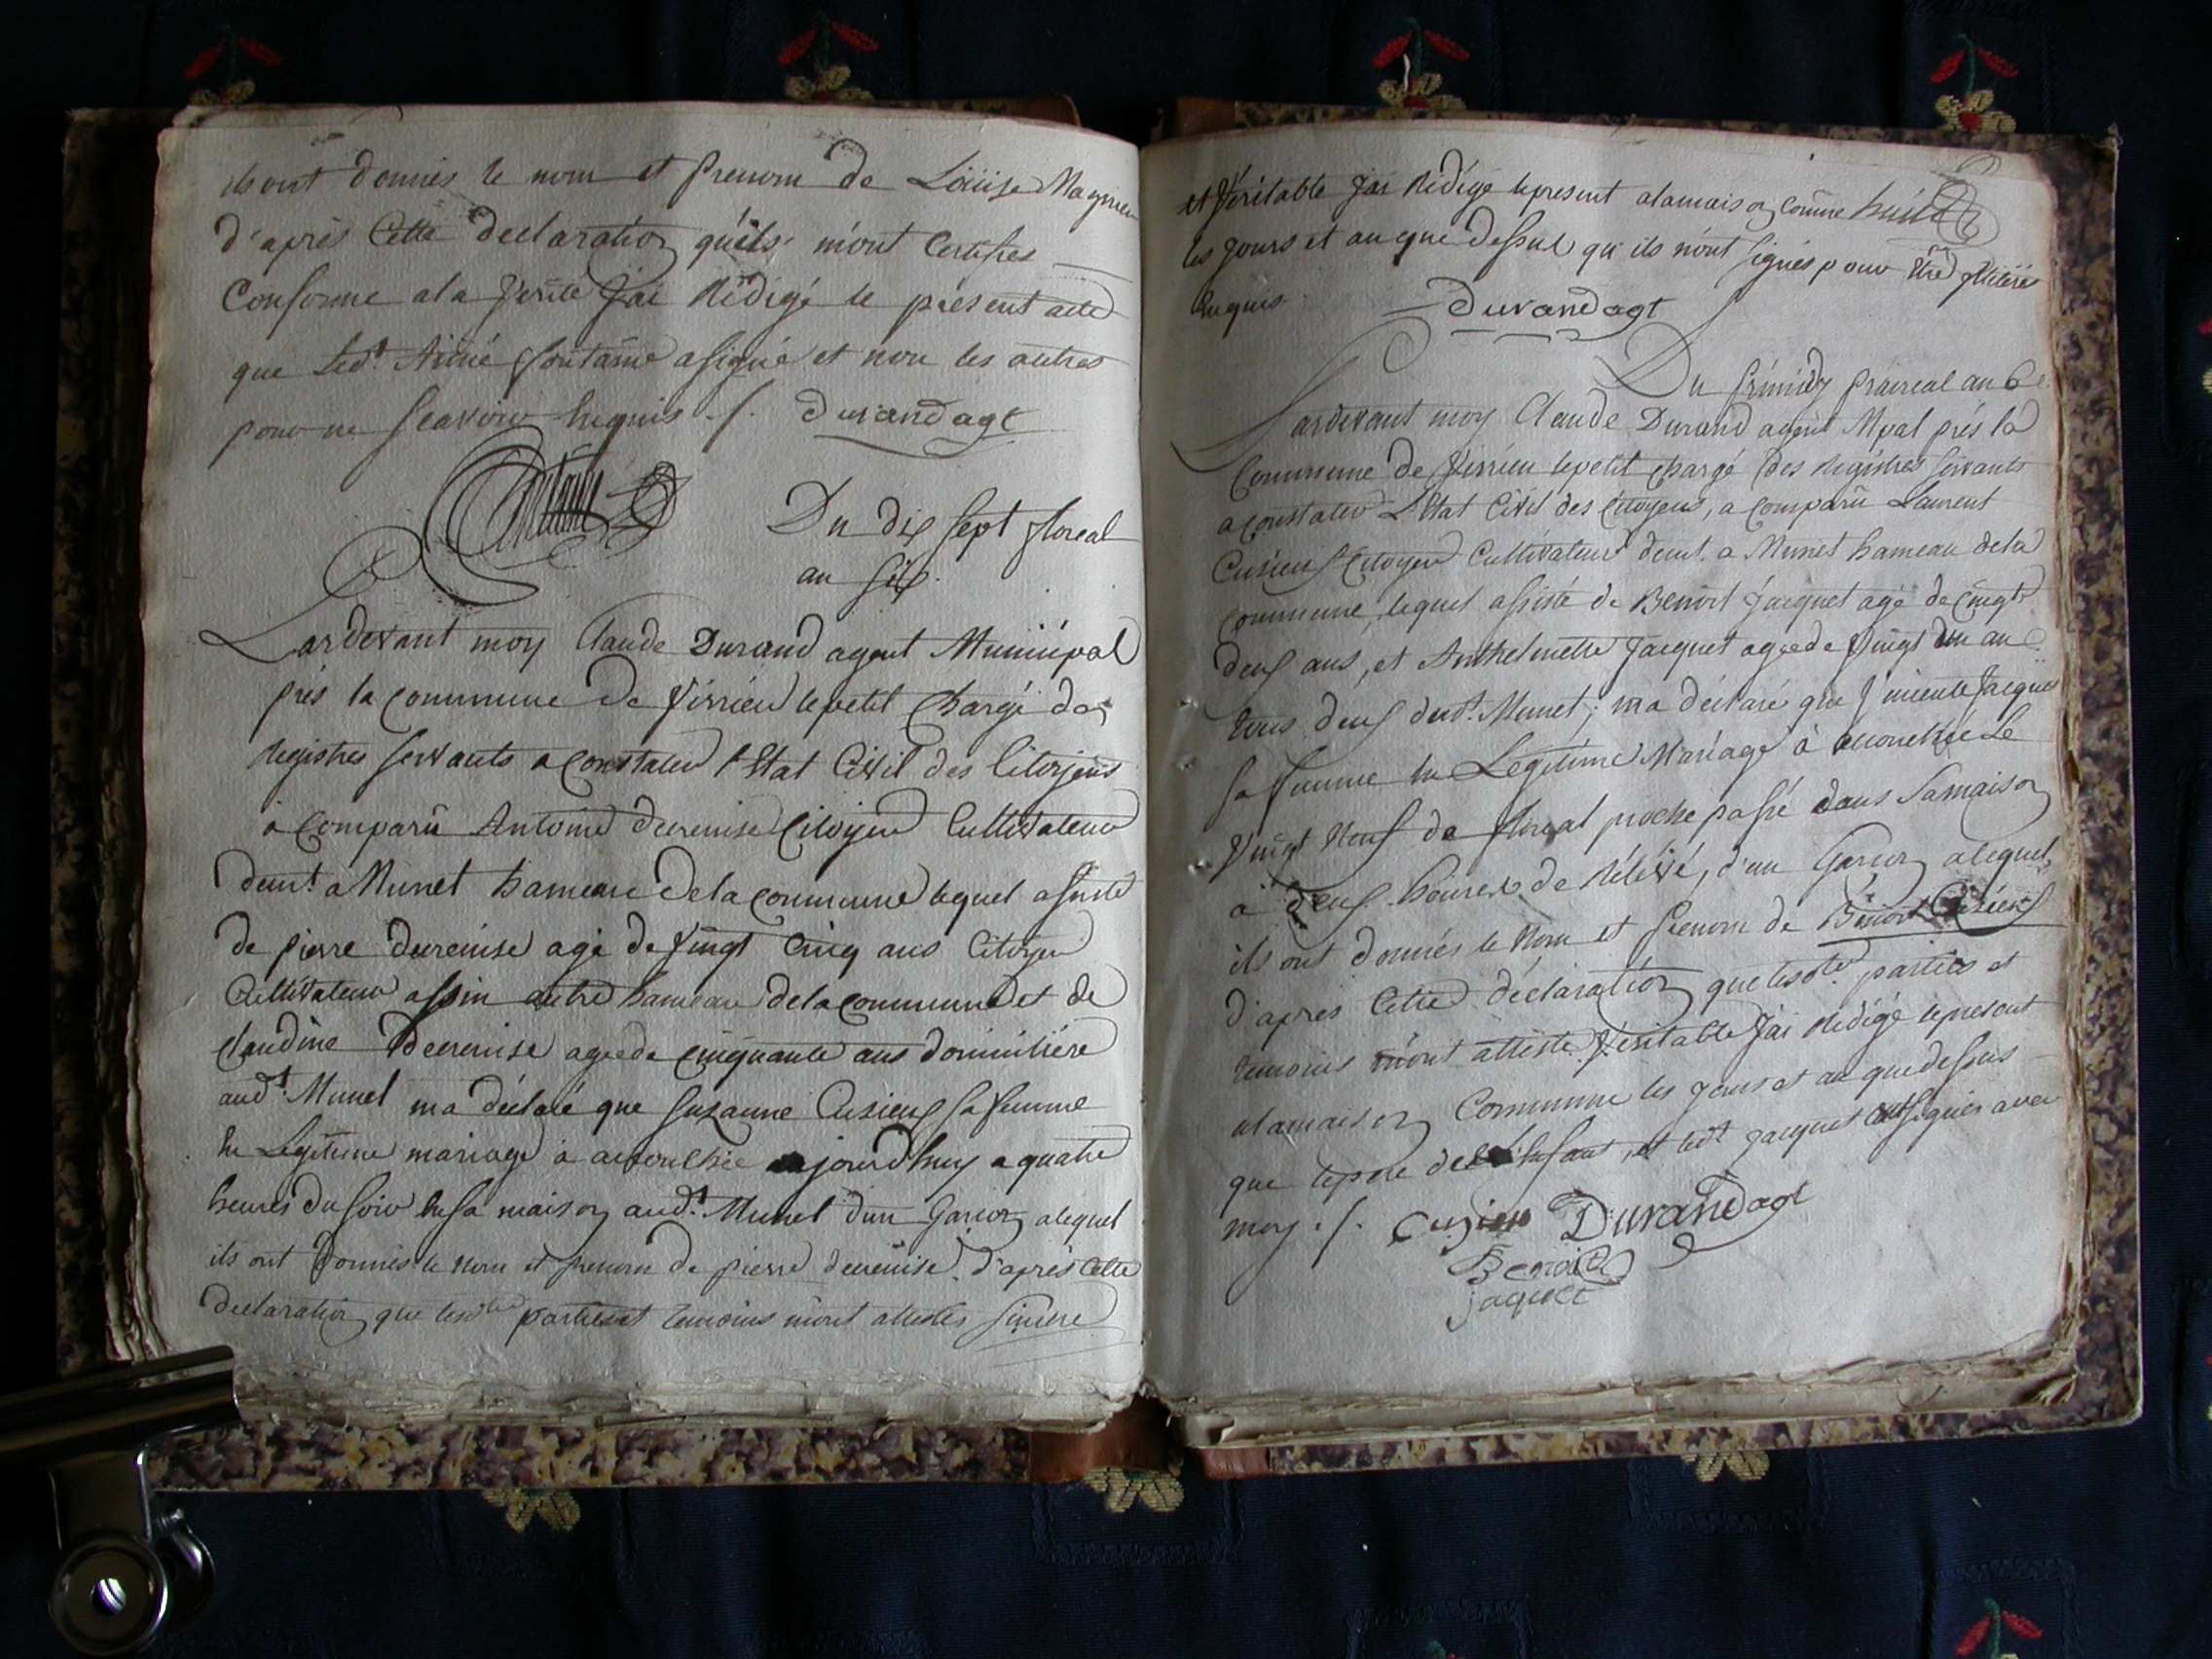 ils ont donnés le nom et prenom de Loüise Magnien
d'après Cette declaration qu'ils m'ont Certifies
Conforme a la Verité J'ai Rédigé le présent acte
que led.t Aimé fontaine a signé et non les autres
pour ne scavoir Requis ./. Durand agt
Du dix sept floreal
an six.
Pardevant moy Claude Durand agent Municipal
près la commune de Virrieu le petit Chargé des
Registres servants a constater l'Etat Civil des Citoyens
a Comparü Antoine decremise Citoyen Cultivateur
demt. a Munet hameau de la commune lequel assisté
de pierre decremise agé de vingt cinq ans Citoyen
Cultivateur assin autre hameau de la commune et de
Claudine decremise agée de cinquante ans domiciliere
aud.t Munet m'a déclaré que Suzanne Cusieux sa femme
En Legitime mariage a accouchée aujourd'huy a quatre
heures du soir En sa maison aud.t Munet d'un Garcon alequel
ils ont donnés le nom et prenom de pierre decremise. d'après Cette
declaration que lesdtes parties et temoins m'ont attestés sincere
et Véritable J'ai Rédigé le present a la maison comune
les jours et an que dessus qu'ils n'ont signés pour Etre
Requis Durand agt
Du primidy prairéal an 6e.
Pardevant moy Claude Durand agent Mpal près la
Commune de Virrieu le petit Chargé des Registres servants
a constater L'Etat Civil des Citoyens, a comparü Laurent
Cusieux Citoyen Cultivateur demt. a Munet hameau de la
commune, lequel assisté de Benoit Jacquet agé de vingt
deux ans, et Anthelmette Jacquet agée de vingt un an
tous deux dud.t Munet; m'a déclaré que Jacquet
sa femme En Legitime Mariage à accouchée Le
vingt Neuf de floreal proche passé dans sa maison
à deux heures de Rélévé, d'un Garcon alequel
ils ont donnés le Nom et prenom de Benoit Cusieux
d'après Cette déclaration que lesdtes. parties et
temoins m'ont attesté Véritable J'ai Rédigé le present
a la maison Commune les jours et an que dessus
que le pere de l'Enfant, et led.t Jacquet ont signés avec
moy ./. Cusieux Durand agt
Benoit
jaquet